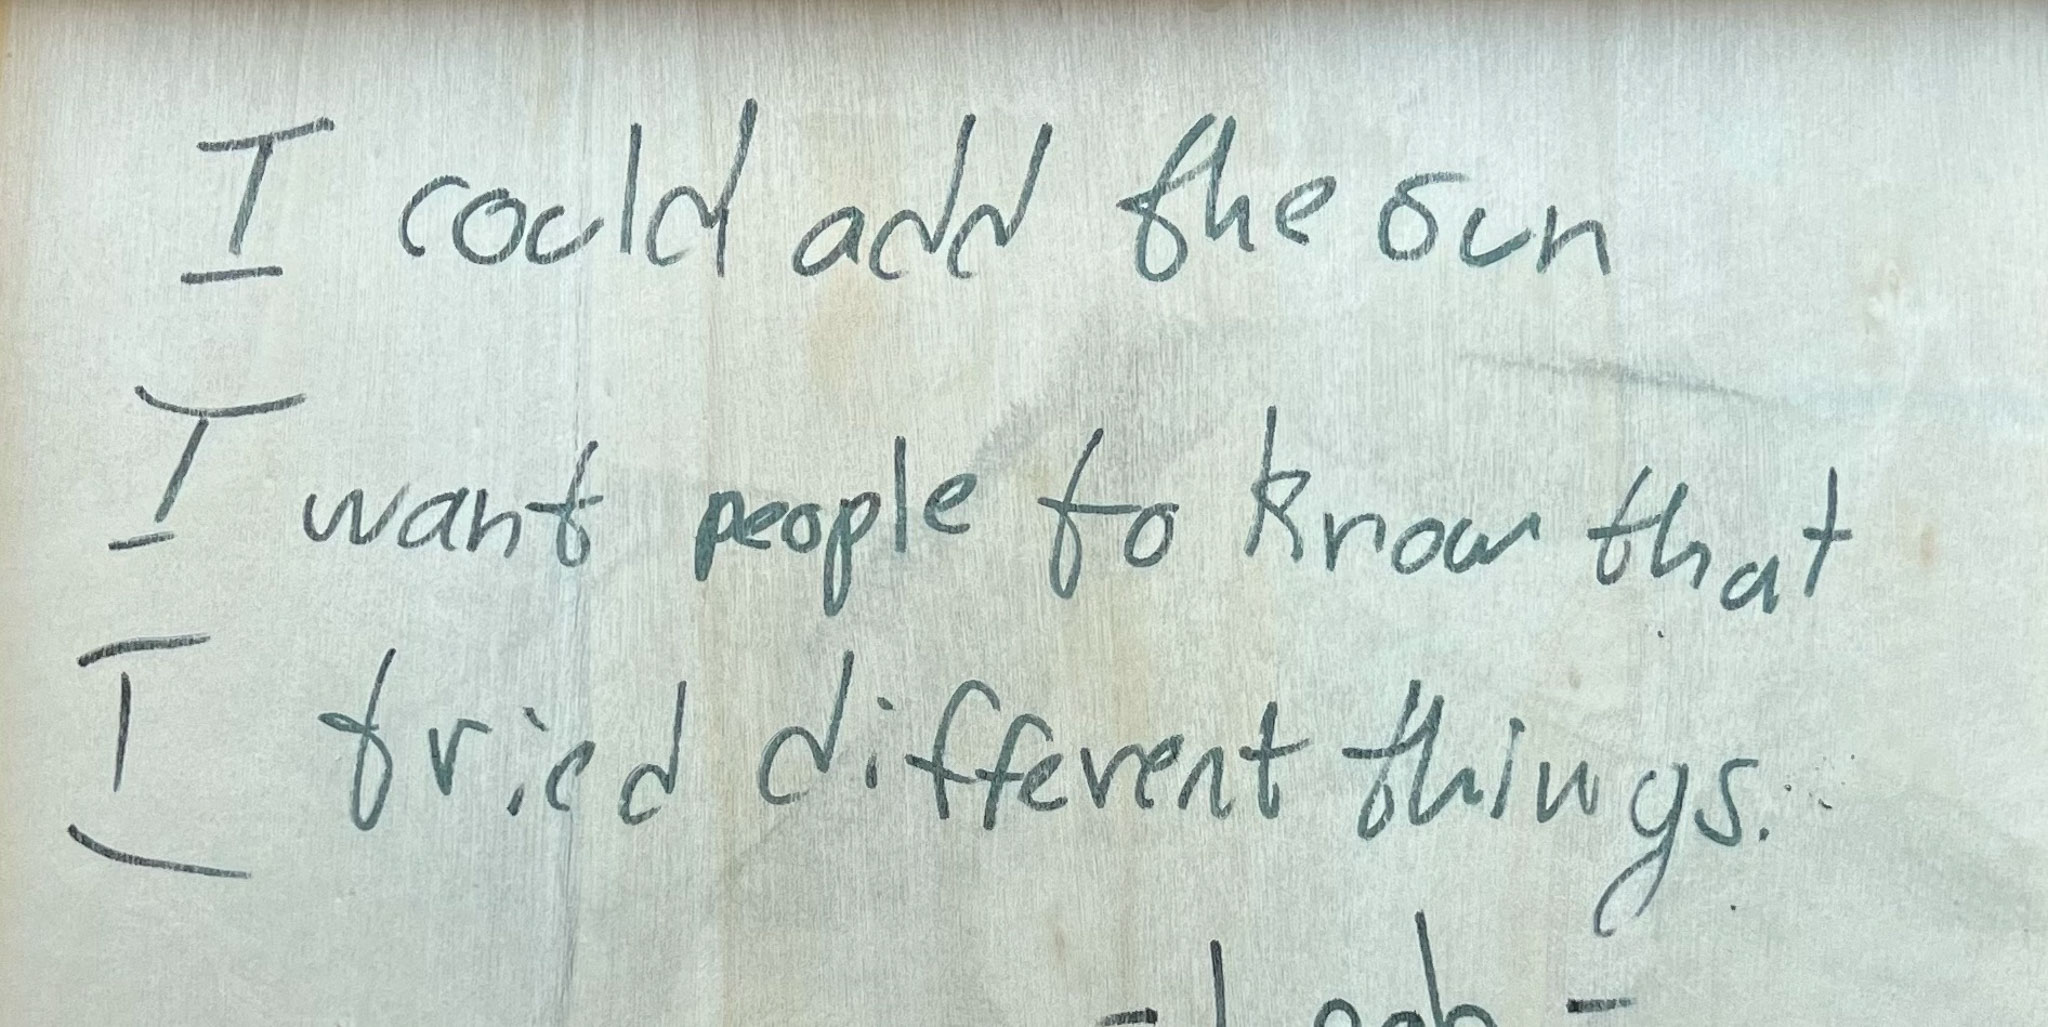 I could add the sun
I want people to know that
I tried different things.
- Leah -